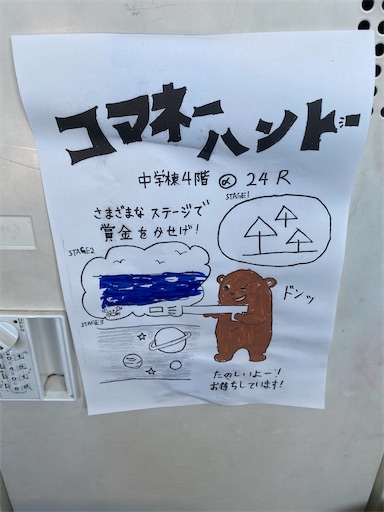 コマネーハンド
中学棟4階 @ 24R
STAGE1
さまざまな ステージで
賞金をかせげ!
STAGE2
ドンッ
STAGE3
たのしいよー!
お待ちしています!